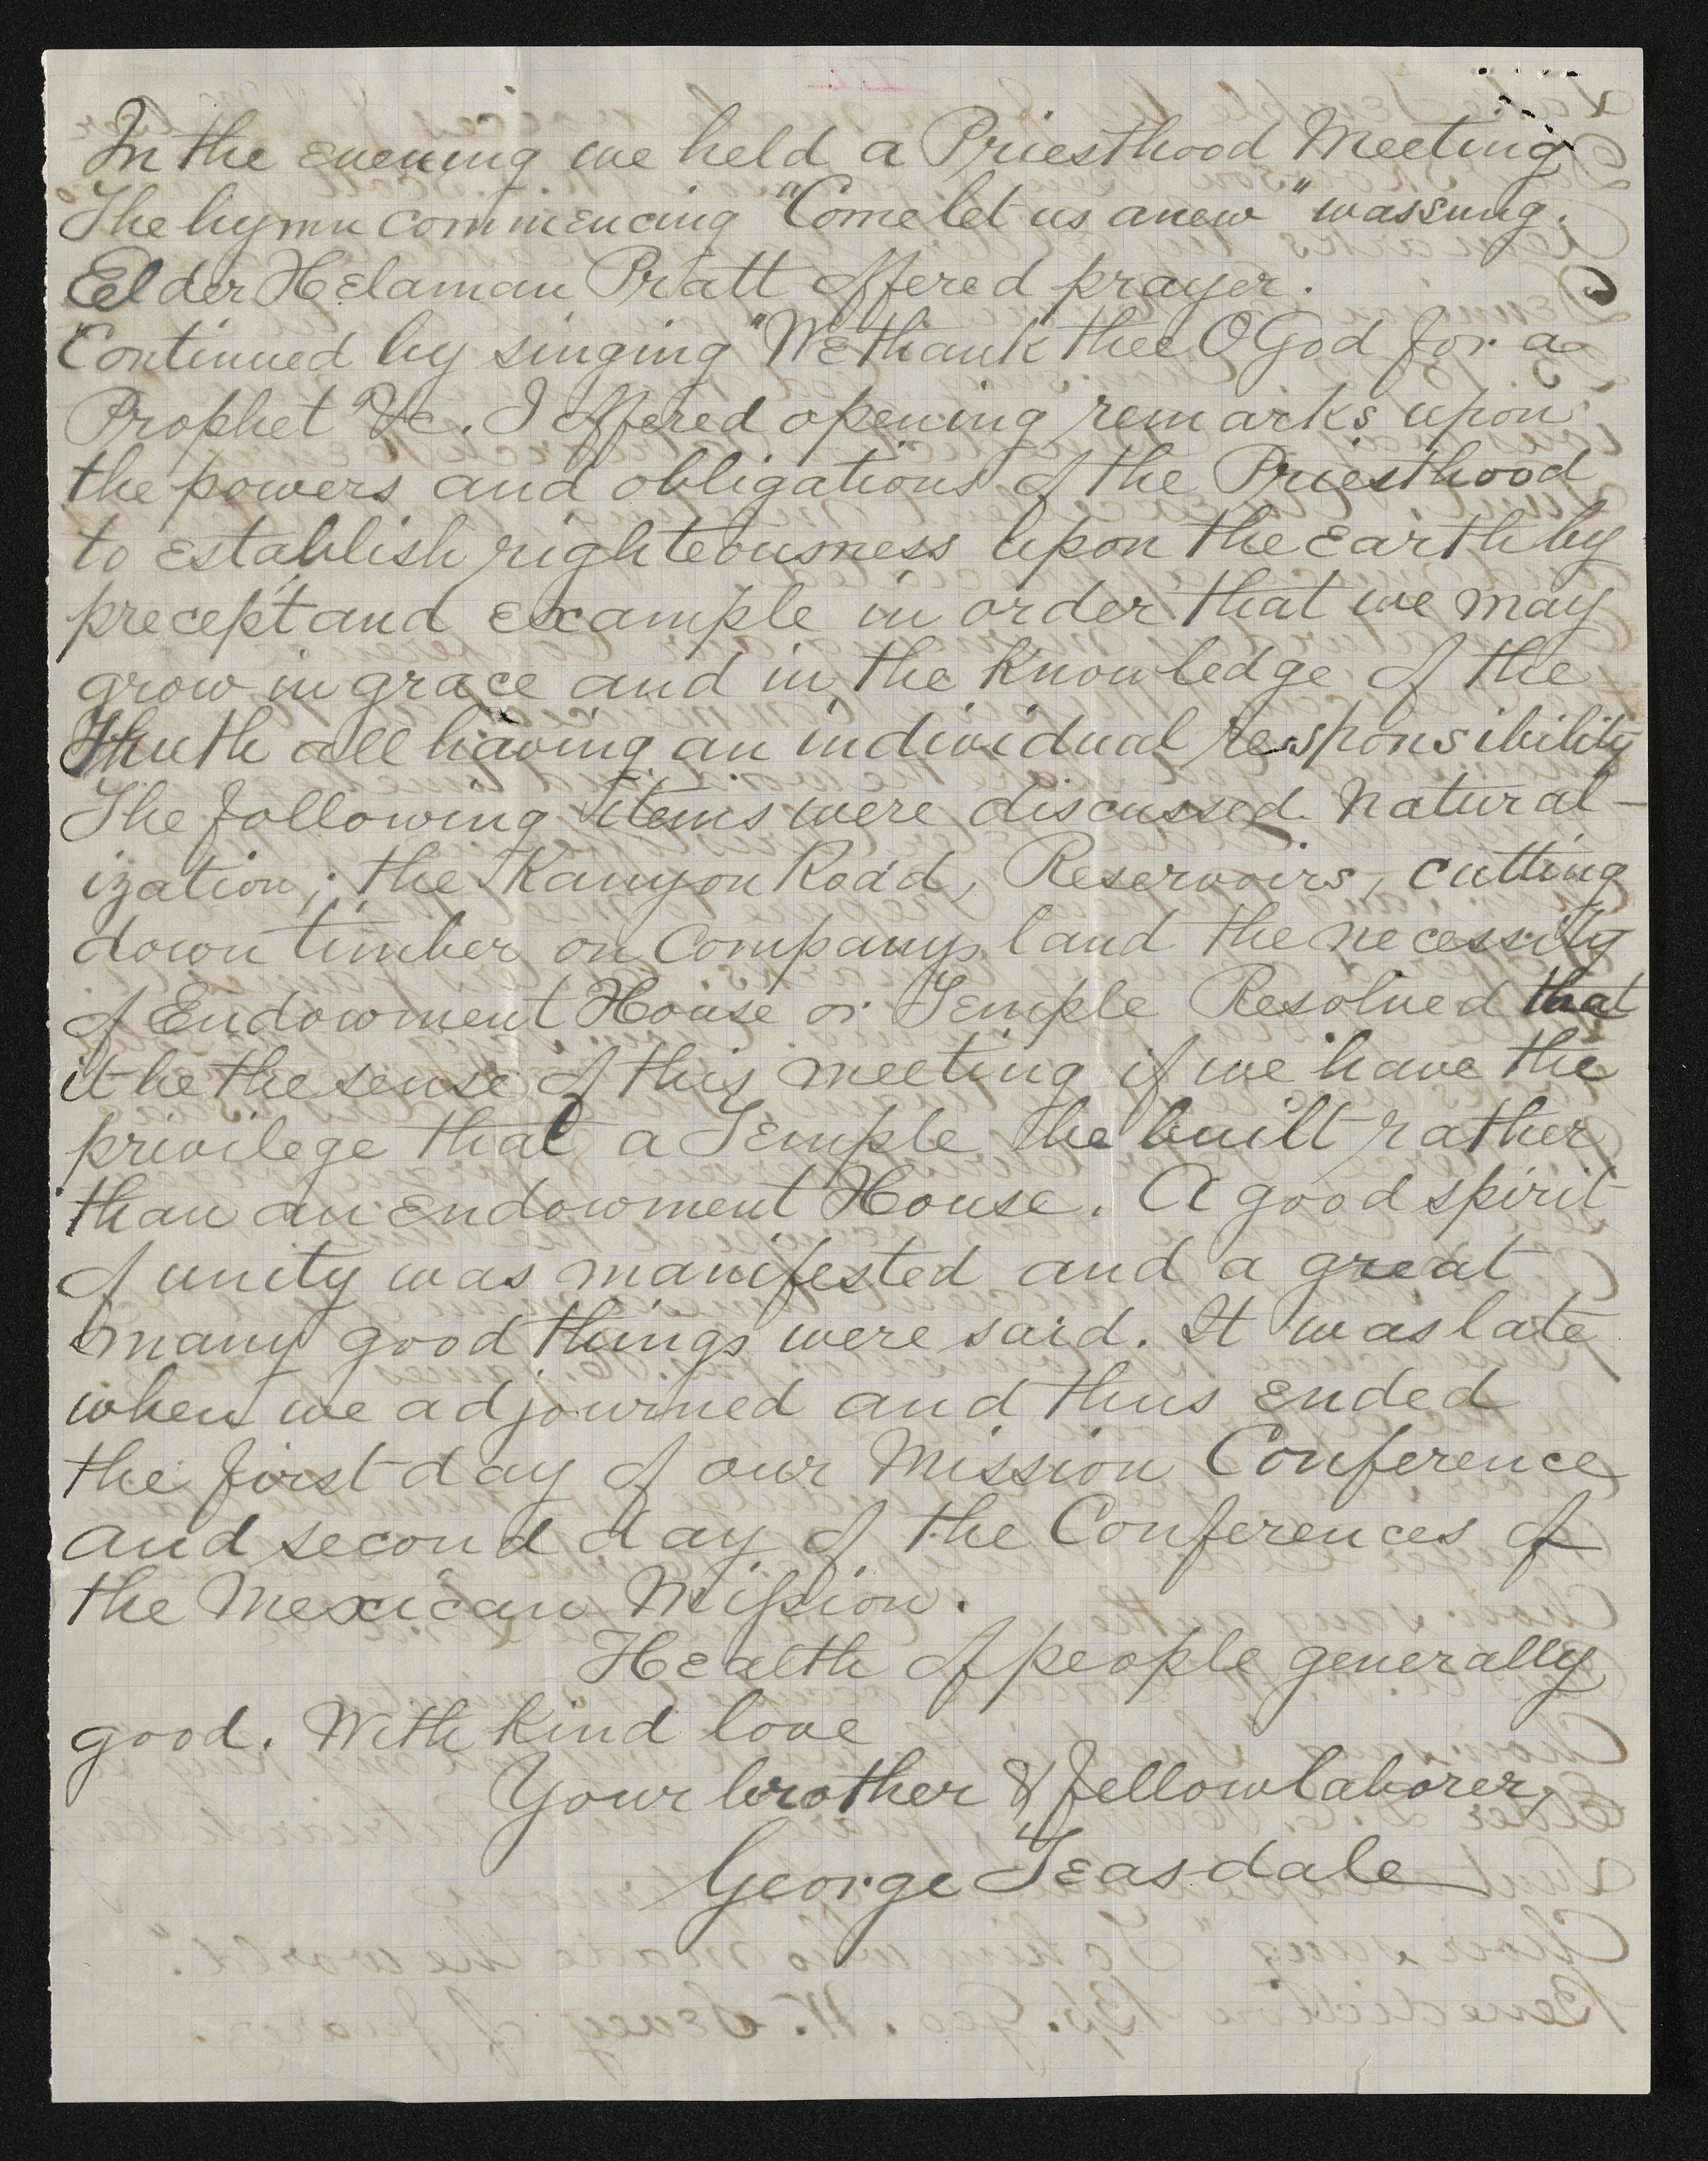 In the evening we held a Priesthood Meeting
The hymn commencing "Come let us anew" was sung.
Elder Helaman Pratt offered prayer.
Continued by singing "We thank thee O God for a
Prophet" &c. I offered opening remarks upon
the powers and obligations of the Priesthood
to establish righteousness upon the Earth by
precept and example in order that we may
grow in grace and in the knowledge of the
Truth all having an individual responsibility
The following items were discussed. Natural-
ization; the Kanyon Road, Reservoirs, cutting
down timber on Companys land the necessity
of Endowment House or Temple Resolved that
it be the sense of this meeting if we have the
privilege that a Temple be built rather
than an Endowment House. A good spirit
of unity was manifested and a great
many good things were said. It was late
when we adjourned and thus ended
the first day of our Mission Conference
and second day of the Conferences of
the Mexican Mission.
Health of people generally
good. With kind love
Your brother & fellowlaborer,
George Teasdale